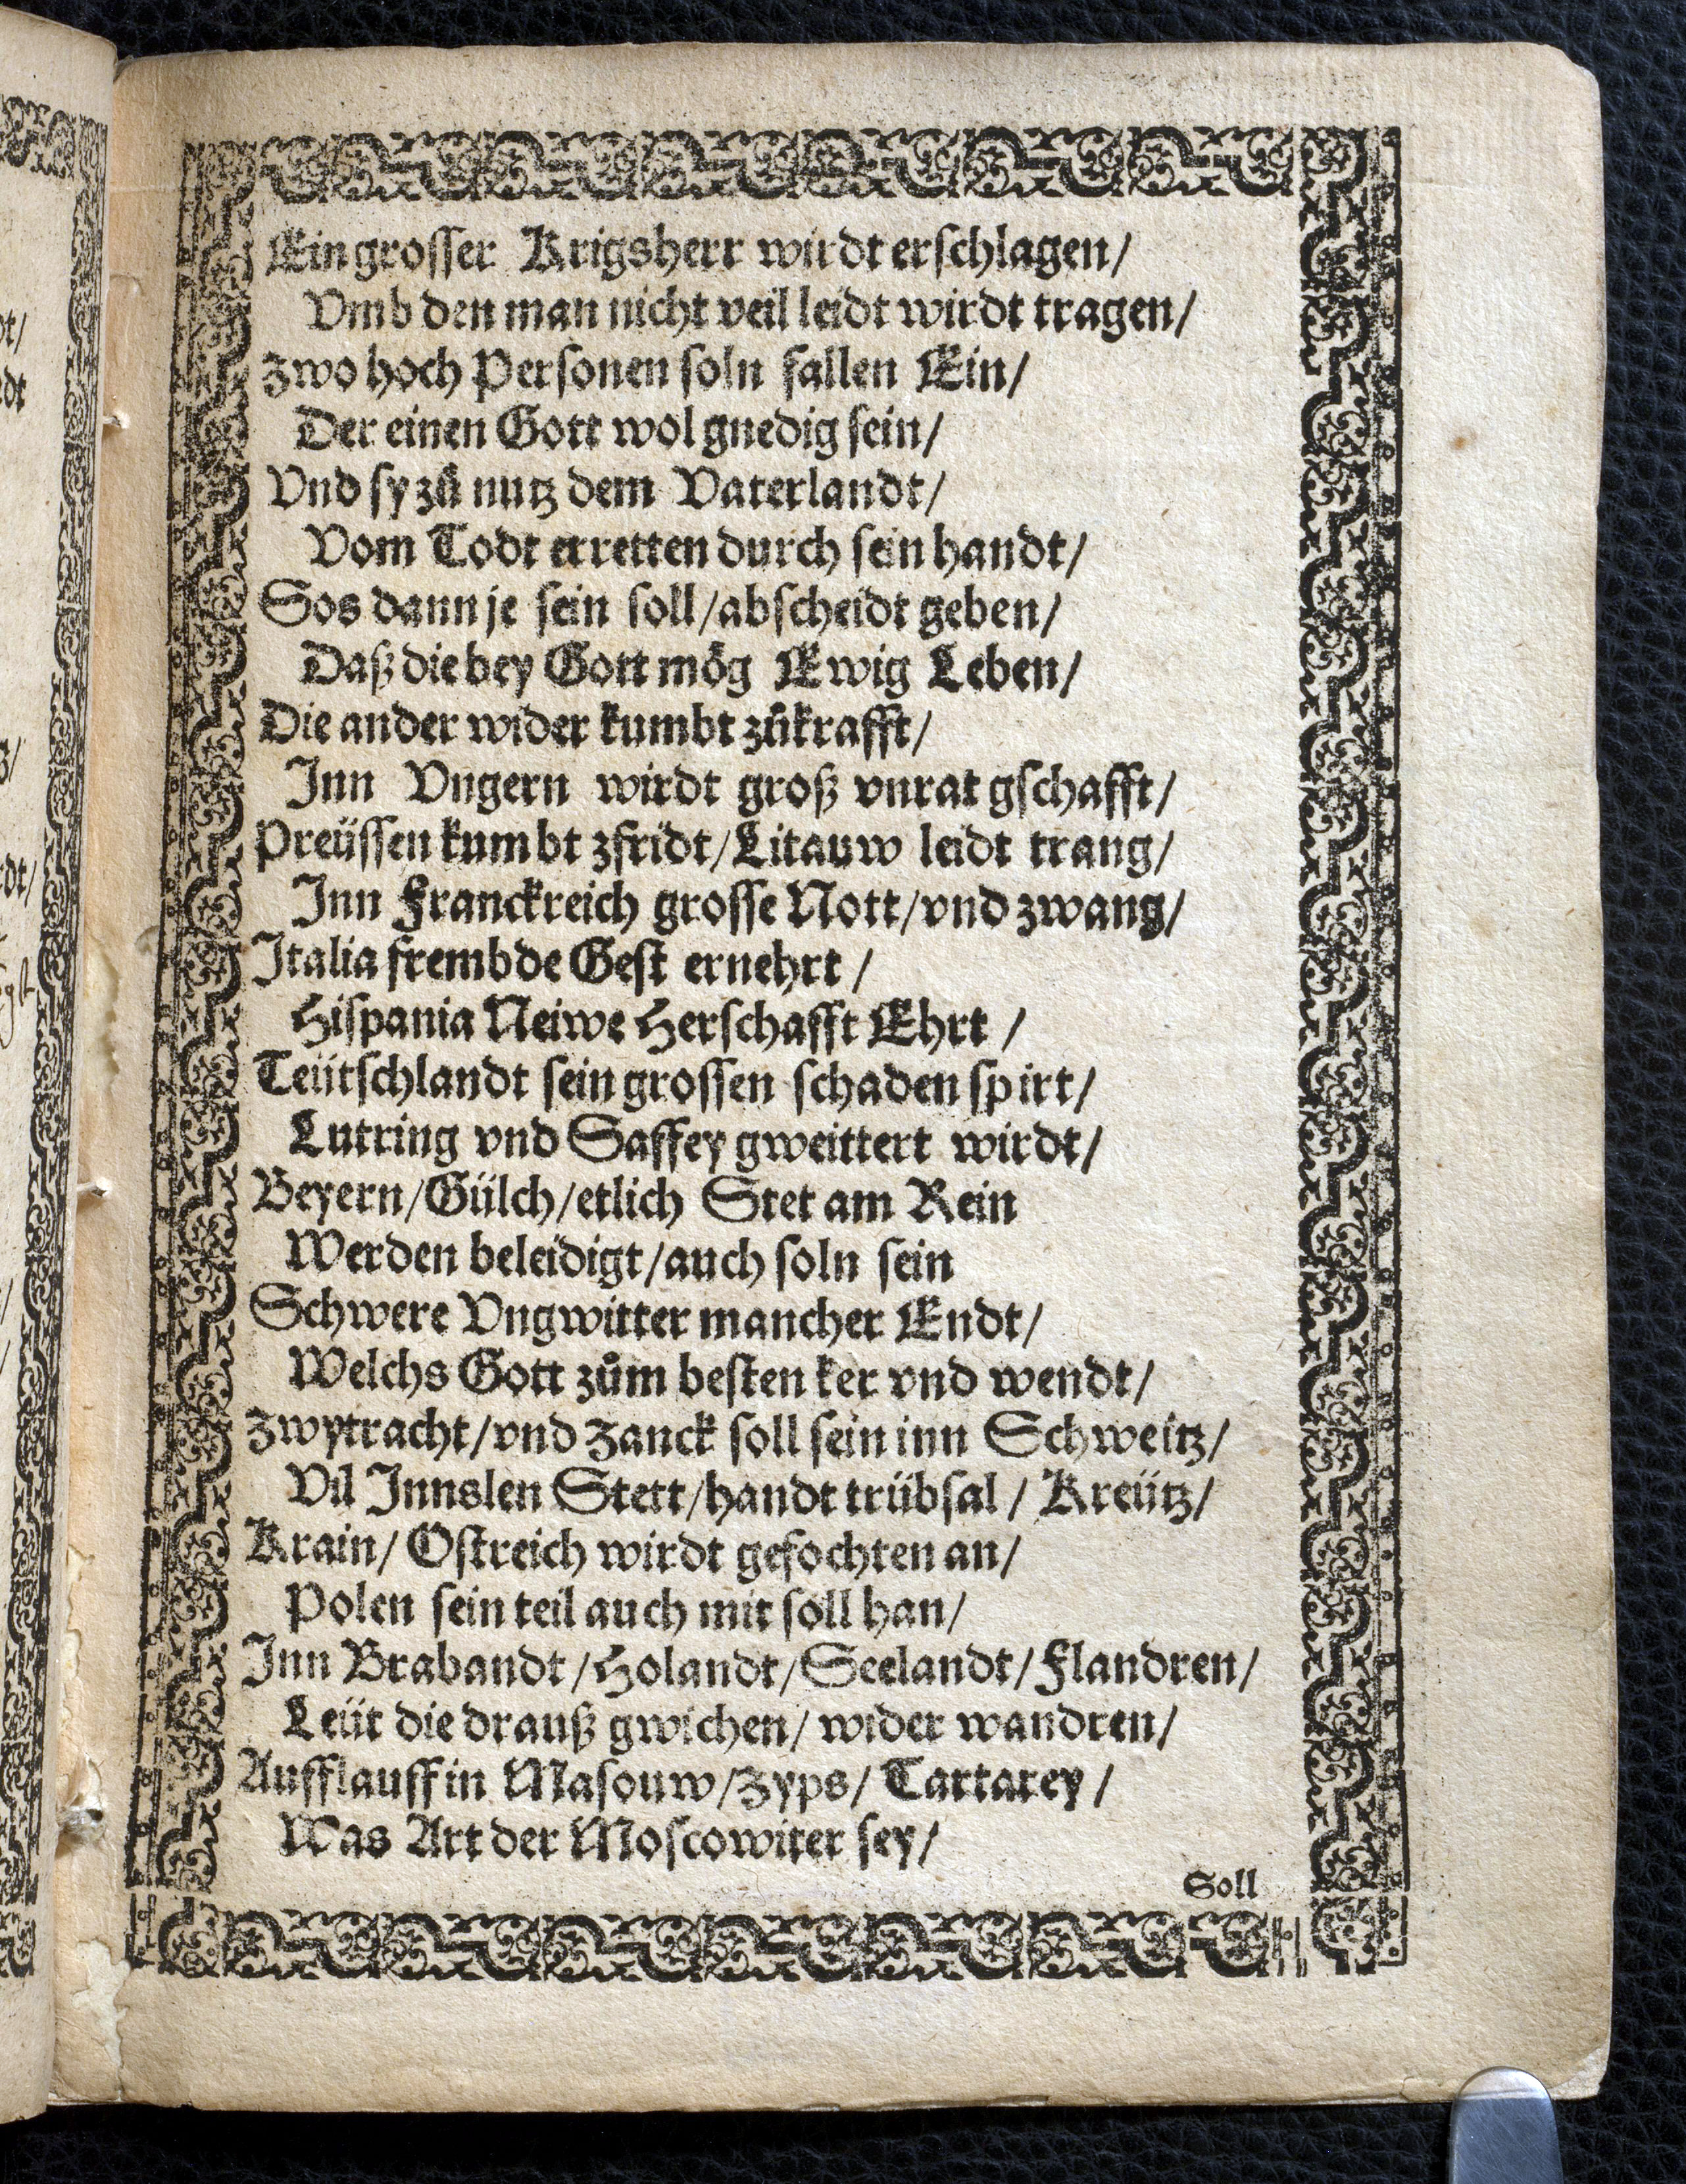 Ein grosser Krigsherr wirdt erschlagen/
Vmb den man nicht veil leidt wirdt tragen/
Zwo hoch Personen soln fallen Ein/
Der einen Gott wol gnedig sein/
Vnd sy zů nutz dem Vaterlandt/
Vom Todt erretten durch sein handt/
Sos dann je sein soll/abscheidt geben/
Daß die bey Gott mög Ewig Leben/
Die ander wider kumbt zůkrafft/
Inn Vngern wirdt groß vnrat gschafft/
Preüssen kumbt zfridt/Litauw leidt trang/
Inn Franckreich grosse Nott/vnd zwang/
Italia frembde Gest ernehrt/
Hispania Neiwe Herschafft Ehrt/
Teütschlandt sein grossen schaden spirt/
Lutring vnd Saffey gweittert wirdt/
Beyern/Gülch/etlich Stet am Rein
Werden beleidigt/auch soln sein
Schwere Vngwitter mancher Endt/
Welchs Gott zům besten ker vnd wendt/
Zwytracht/vnd Zanck soll sein inn Schweitz/
Vil Innslen Stett/handt trübsal/Kreütz/
Krain/Ostreich wirdt gefochten an/
Polen sein teil auch mit soll han/
Inn Brabandt/Holandt/Seelandt/Flandren/
Leüt die drauß gwichen/wider wandren/
Aufflauff in Masouw/Zyps/Tartarey/
Was Art der Moscowiter sey/
Soll